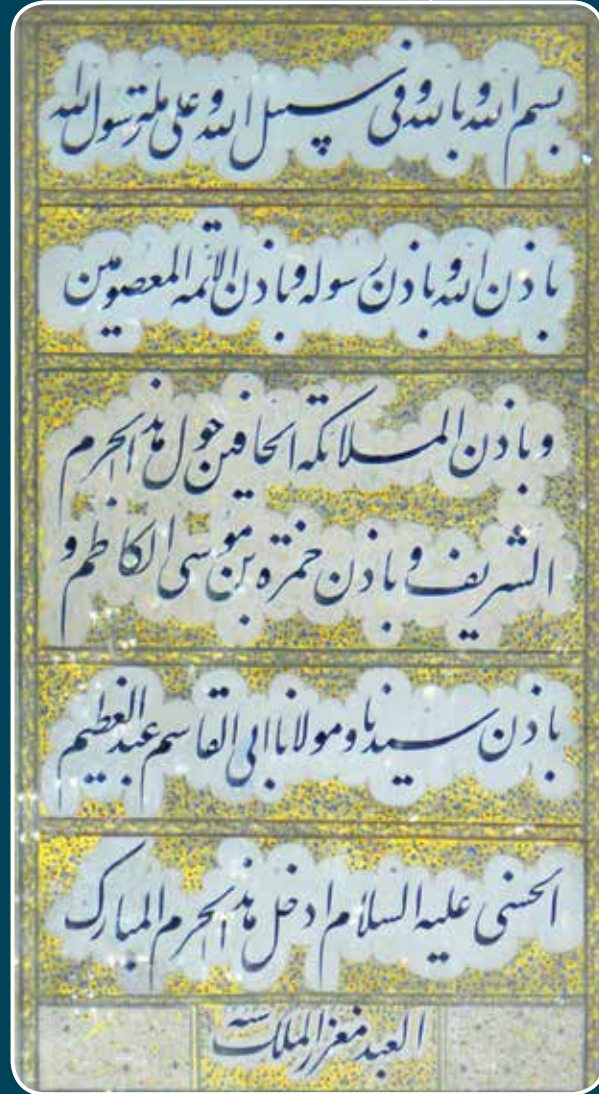 بسم الله و بالله و فی سبیل الله و علی ملة رسول الله
باذن الله و باذن رسوله و باذن الائمه المعصومین
و باذن الملائکة الحافین حول هذا الحرم
الشریف و باذن حمزة بن موسی الکاظم و
باذن سیدنا و مولانا ابی القاسم عبد العظیم
الحسنی علیه السلام ادخل هذا الحرم المبارک
العبد معزز الملک سنه